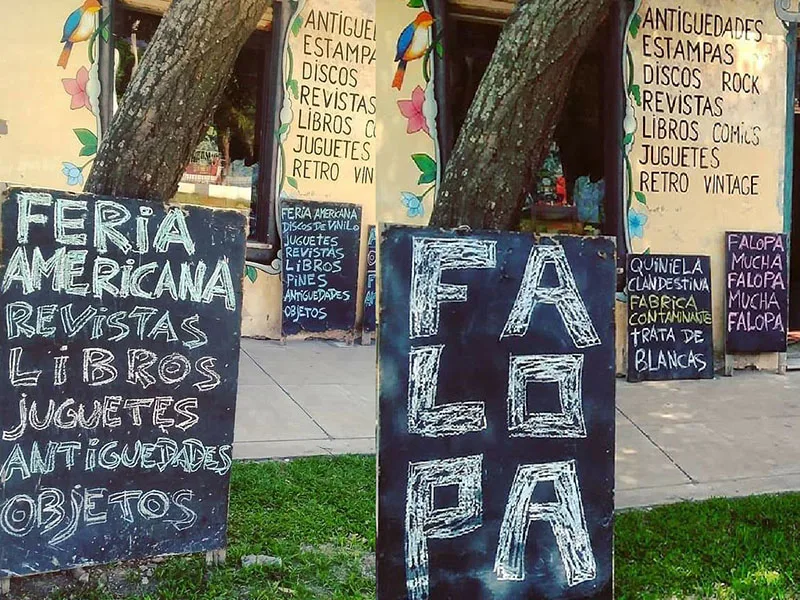 ANTIGUEDADES
ESTAMPA
DISCOS
REVISTAS
LIBROS CO
JUGUETES
RETRO VINT
FERIA AMERICANA
DISCOS DE VINILO
JUGUETES
REVISTAS
LIBROS
PINES
ANTIGUEDADES
OBJETOS
FERIA
AMERICANA
REVISTAS
LIBROS
JUGUETES
ANTIGUEDADES
OBJETOS
ANTIGUEDADES
ESTAMPAS
DISCOS ROCK
REVISTAS
LIBROS COMICS
JUGUETES
RETRO VINTAGE
FA
LO
PA
QUINIELA
CLANDESTINA
FABRICA
CONTAMINANTE
TRATA DE
BLANCAS
FALOPA
MUCHA
FALOPA
MUCHA
FALOPA